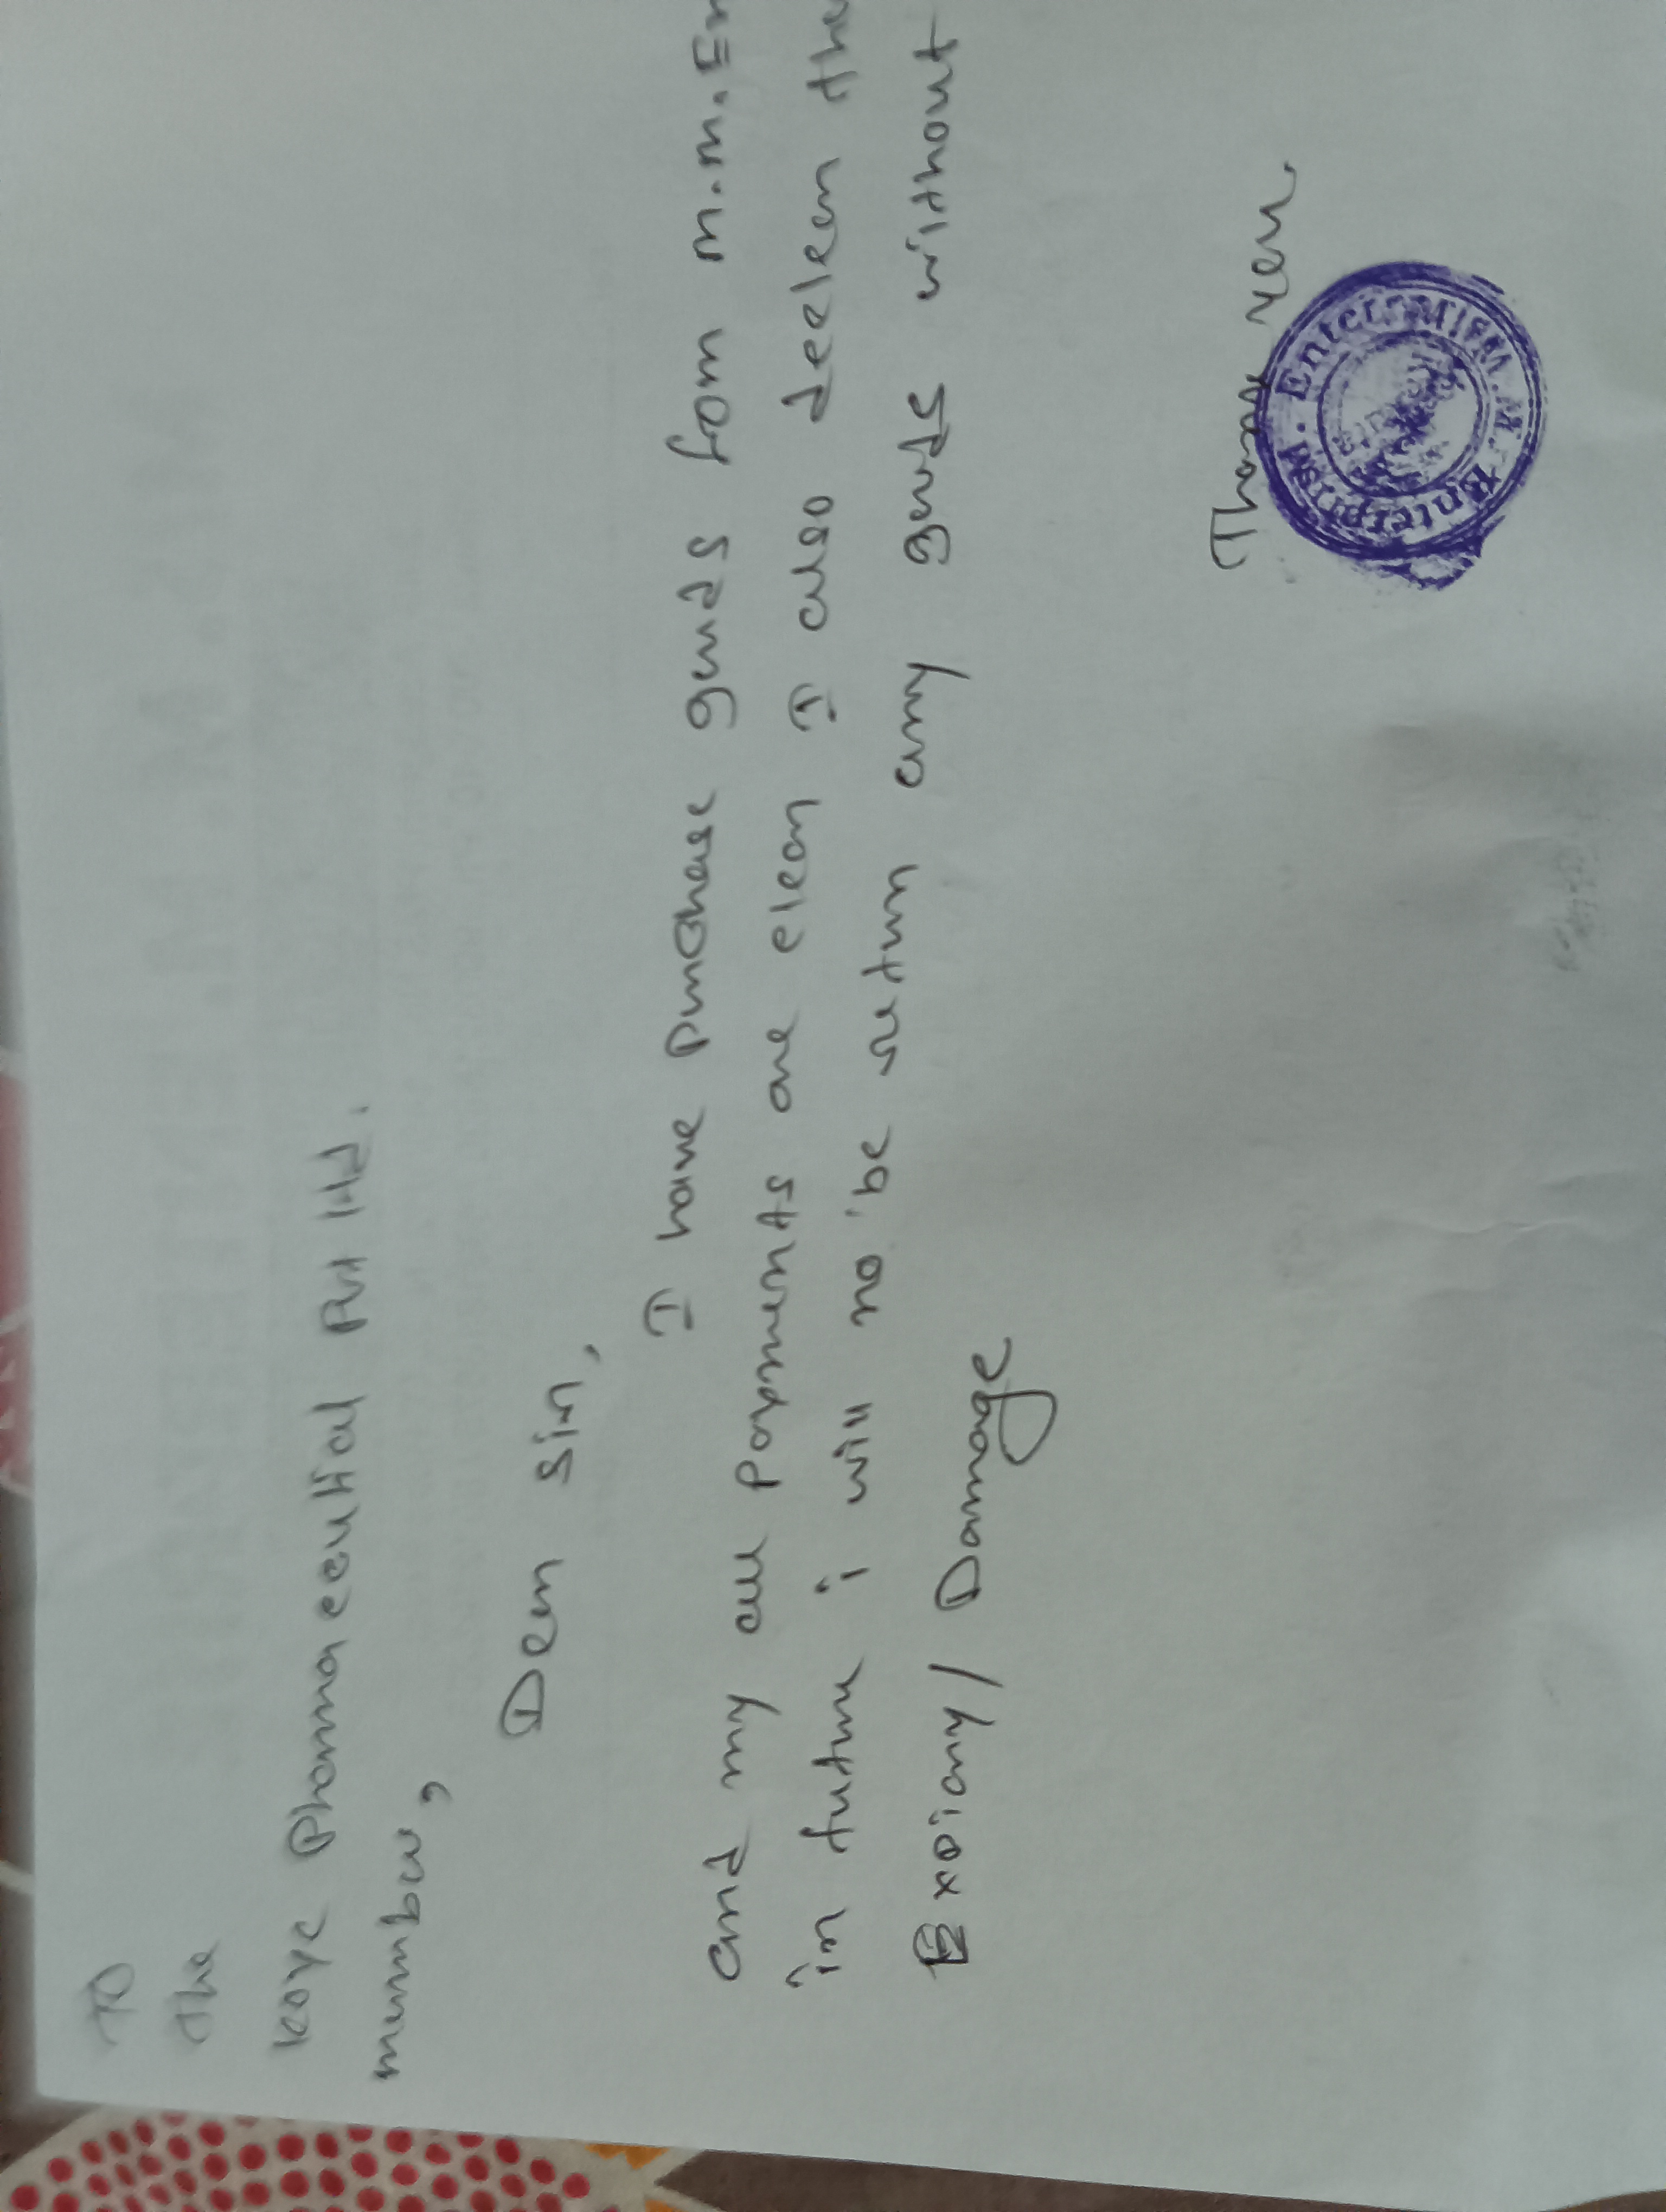 To
The
Koye Pharmaceutical Pvt ltd.
mumbai,
Dear Sir,
I have Purchase goods from M.M. En
and my all Payments are clear I also declear tha
in future i will no be return any goods without
Expiary/ Damage
Thank you.
M.M. Enterprise